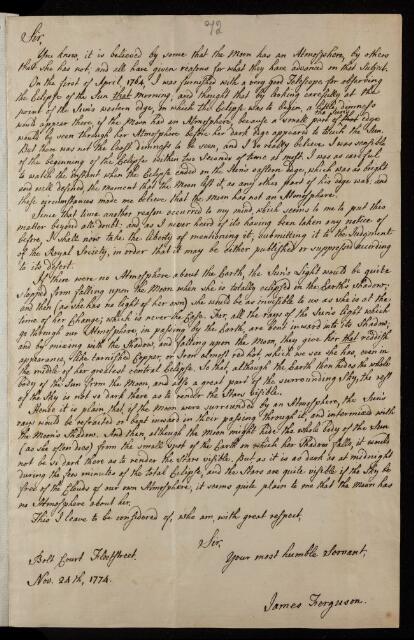 92
Sir,
You know, it is believed by some that the Moon has an Atmosphere, by others
that She has not; and all have given reasons for what they have advanced on that Subject.
On the first of April 1764, I was furnished with a very good Telescope for observing
the Eclipse of the Sun that Morning; and thought that by looking carefully at the
point of the Sun's western edge, on which the Eclipse was to begin, a little dimness
would appear there, if the Moon had an Atmosphere, because a small part of that edge
would be seen through her Atmosphere before her dark edge appeared to touch the Sun.
But there was not the least dimness to be seen, and I do really believe I was sensible
of the beginning of the Eclipse within two Seconds of time at most. I was as careful
to watch the instant when the Eclipse ended on the Sun's eastern edge, which was as bright
and well defined the moment that the Moon left it, as any other part of his edge was; and
these circumstances made me believe that the Moon has not an Atmosphere.
Since that time another reason occurred to my mind which seems to me to put this
matter beyond all doubt: and, as I never heard of its having been taken any notice of
before, I shall now take the liberty of mentioning it; submitting it to the Judgment
of the Royal Society, in order that it may be either published or suppressed according
to its desert.
If there were no Atmosphere about the Earth, the Sun's Light would be quite
stopped from falling upon the Moon when she is totally eclipsed in the Earth's Shadow;
and then (as she has no light of her own) she would be as invisible to us as she is at the
time of her Change; which is never the Case. For, all the rays of the Sun's light which
go through our Atmosphere, in passing by the Earth, are bent inward into its Shadow;
and by mixing with the Shadow, and falling upon the Moon, they give her that reddish
appearance, (like tarnished Copper, or Iron almost red hot) which we see she has, even in
the middle of her greatest central Eclipse. So that, although the Earth then hides the whole
body of the Sun from the Moon, and also a great part of the surrounding Sky, the rest
of the Sky is not so dark there as to render the Stars visible.
Hence it is plain, that if the Moon were surrounded by an Atmosphere, the Sun's
rays would be refracted or bent inward in their passing through it, and intermixed with
the Moon's Shadow. And then, although the Moon might hide the whole body of the Sun
(as she often does) from the small spot of the Earth on which her Shadow falls, it would
not be so dark there as to render the Stars visible. But as it is as dark as at midnight
during the few minutes of the total Eclipse, and the Stars are quite visible if the Sky be
free of the Clouds of our own Atmosphere, it seems quite plain to me that the Moon has
no Atmosphere about her.
This I leave to be considered of, who am, with great respect,
Sir,
Bolt Court Fleetstreet.
Your most humble Servant,
Nov. 24th, 1774.
James Ferguson.